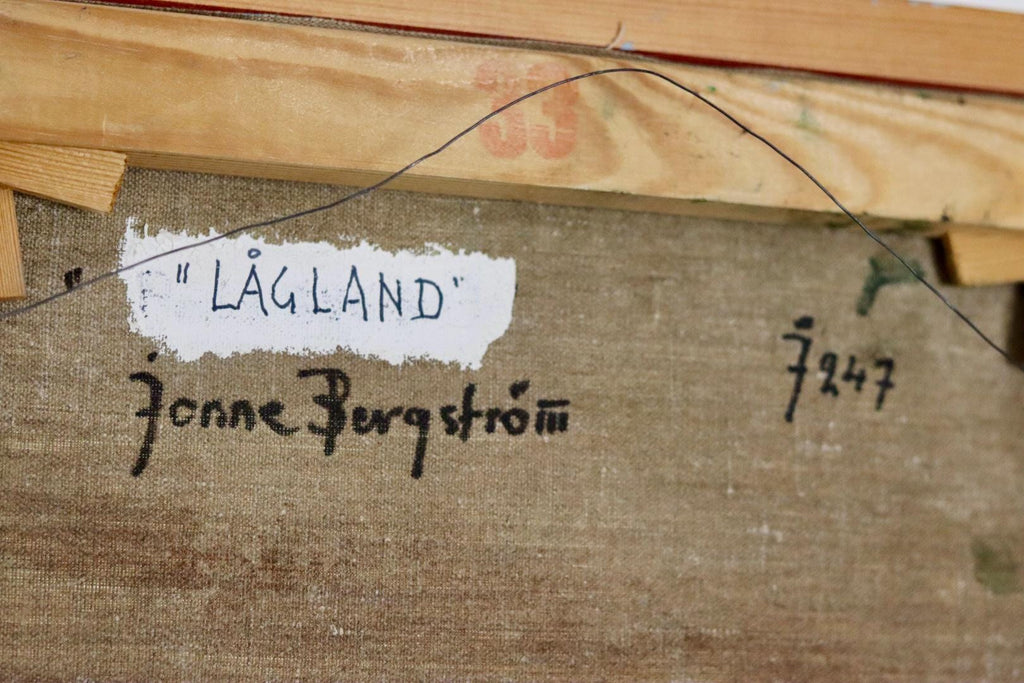 33
"LÅGLAND"
Jonne Bergström
J247